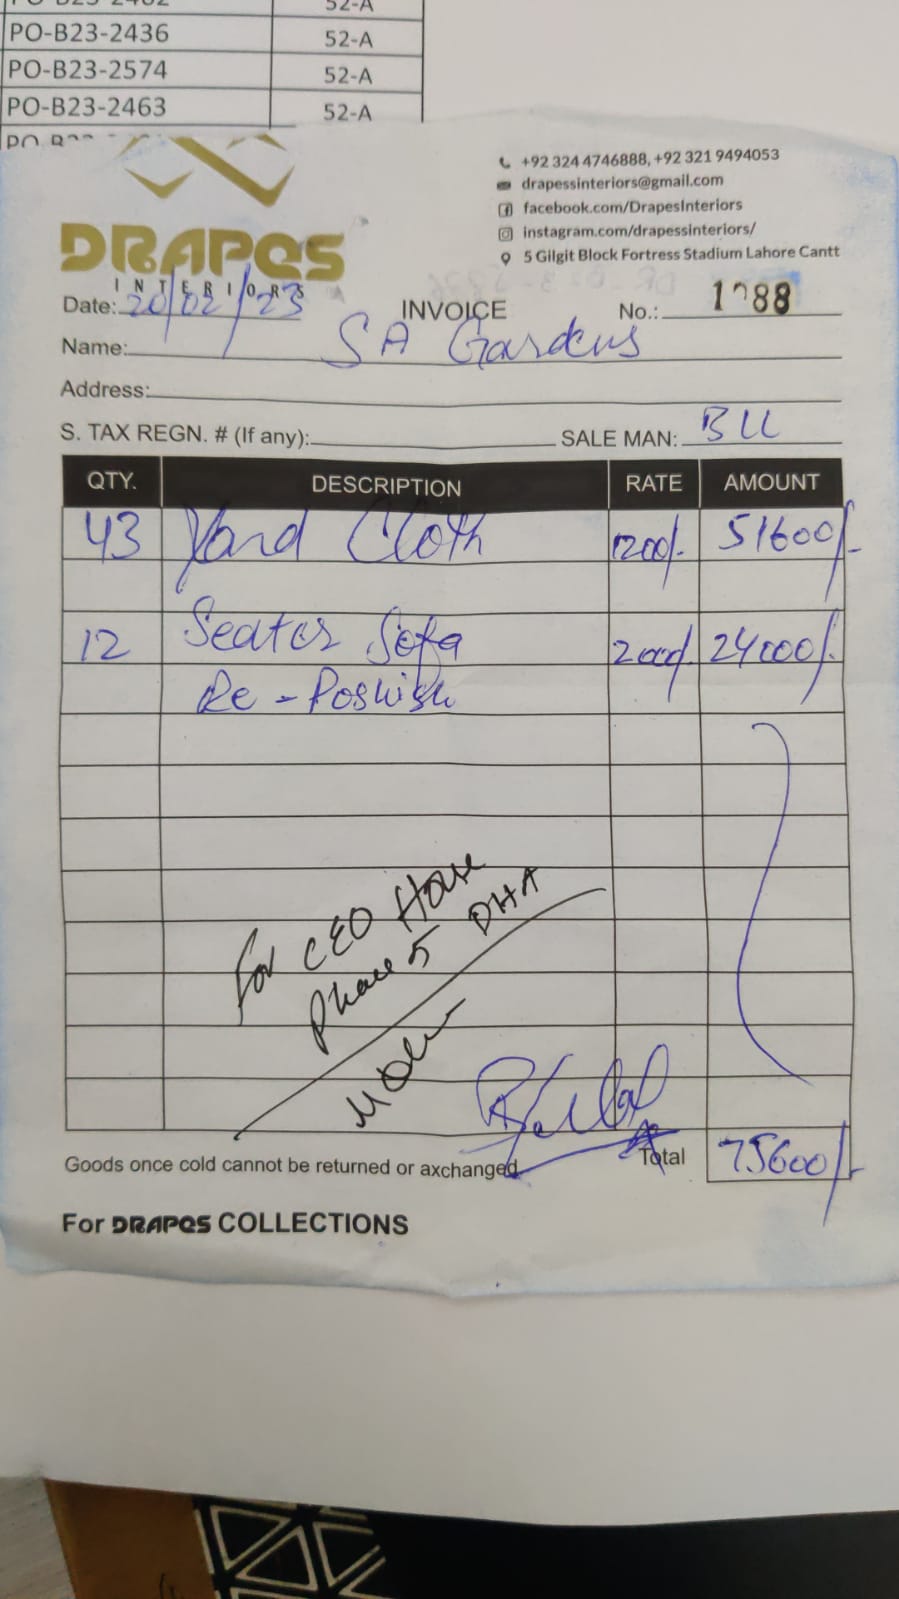 52-A
PO-B23-2436 52-A
PO-B23-2574 52-A
PO-B23-2463 52-A
DRAPES
INTERIORS
+92 324 4746888, +92 321 9494053
drapessinteriors@gmail.com
facebook.com/DrapesInteriors
instagram.com/drapessinteriors/
5 Gilgit Block Fortress Stadium Lahore Cantt
Date: 20/02/23 INVOICE No.: 1088
Name: SA Gardens
Address:
S. TAX REGN. # (If any): SALE MAN:
QTY. DESCRIPTION RATE AMOUNT
43 Yard Cloth 1200/- 51600/-
12 Seater Sofa 2000/- 24000/-
Re - Poshish
For CEO House
Phase 5 DHA
Total 75600/-
Goods once cold cannot be returned or axchanged
For DRAPES COLLECTIONS